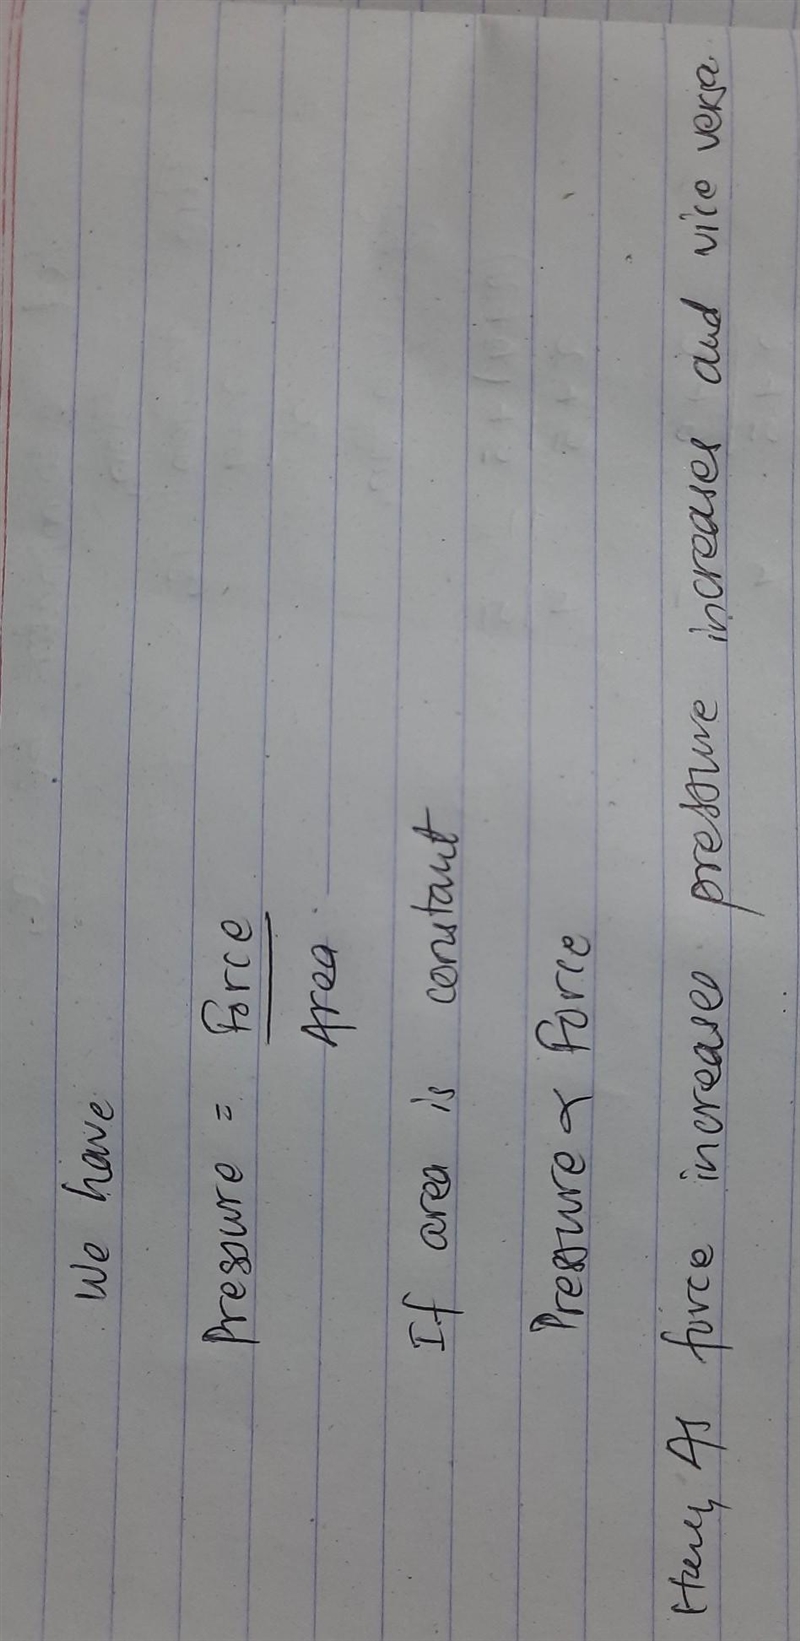 We have
Pressure = Force
Area
If area is constant
Pressure ∝ Force
As force increases pressure increases and vice versa.